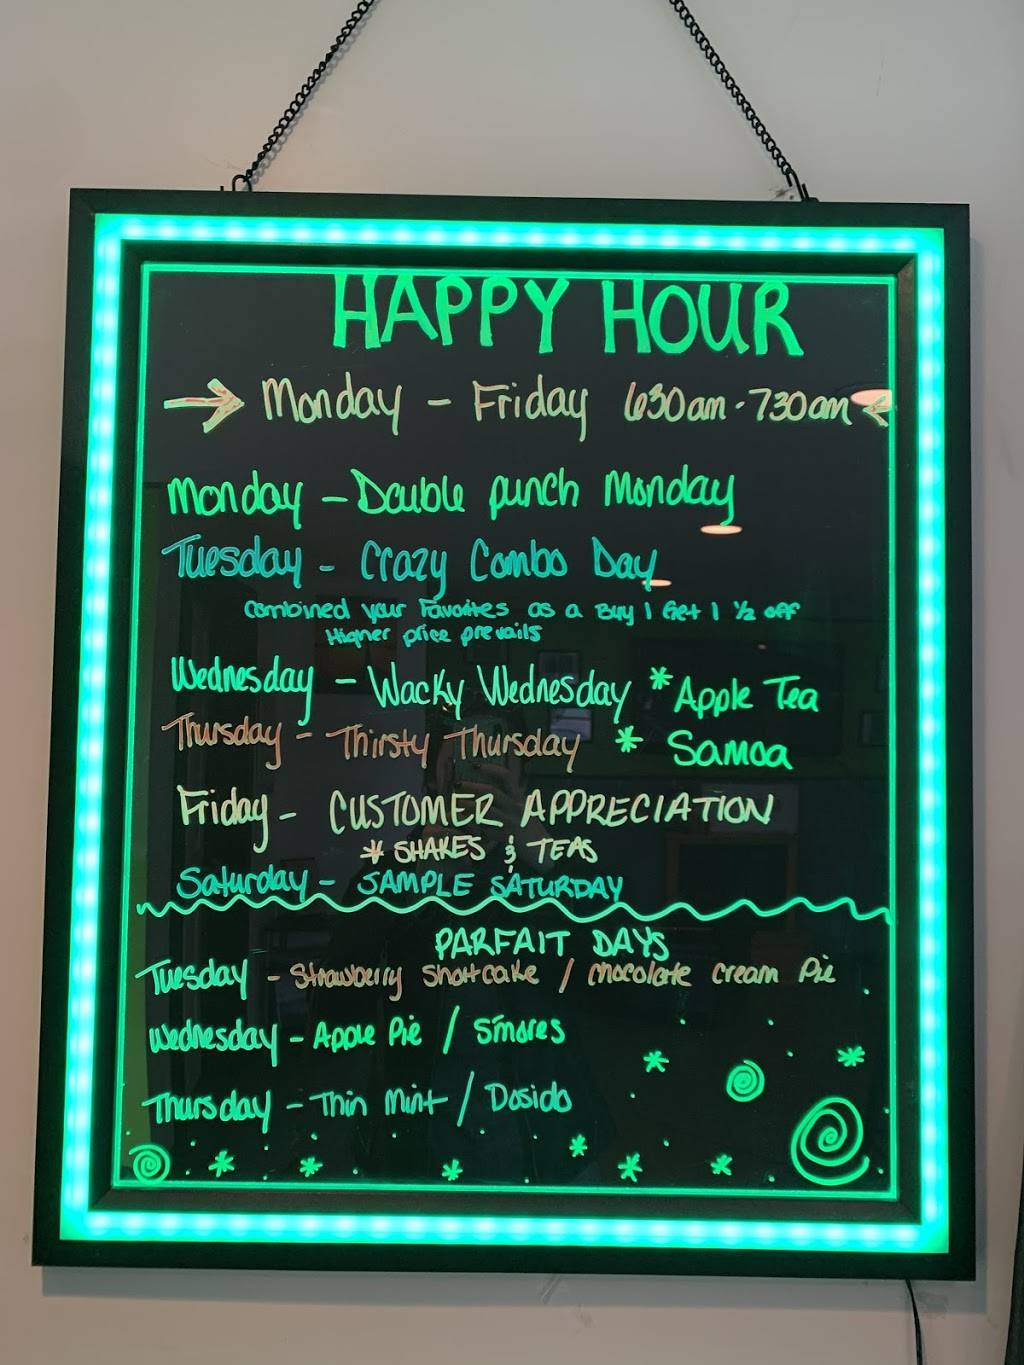 HAPPY HOUR
Monday - Friday 630am - 730am
Monday - Double punch Monday
Tuesday - Crazy Combo Day
Combined your Favorites as a Buy 1 Get 1 1/2 off
Higher price prevails
Wednesday - Wacky Wednesday * Apple Tea
Thursday - Thirsty Thursday * Samoa
Friday - CUSTOMER APPRECIATION
* SHAKES & TEAS
Saturday - SAMPLE SATURDAY
PARFAIT DAYS
Tuesday - Strawberry Shortcake / chocolate cream Pie
Wednesday - Apple Pie / S'mores
Thursday - Thin Mint / Dosido